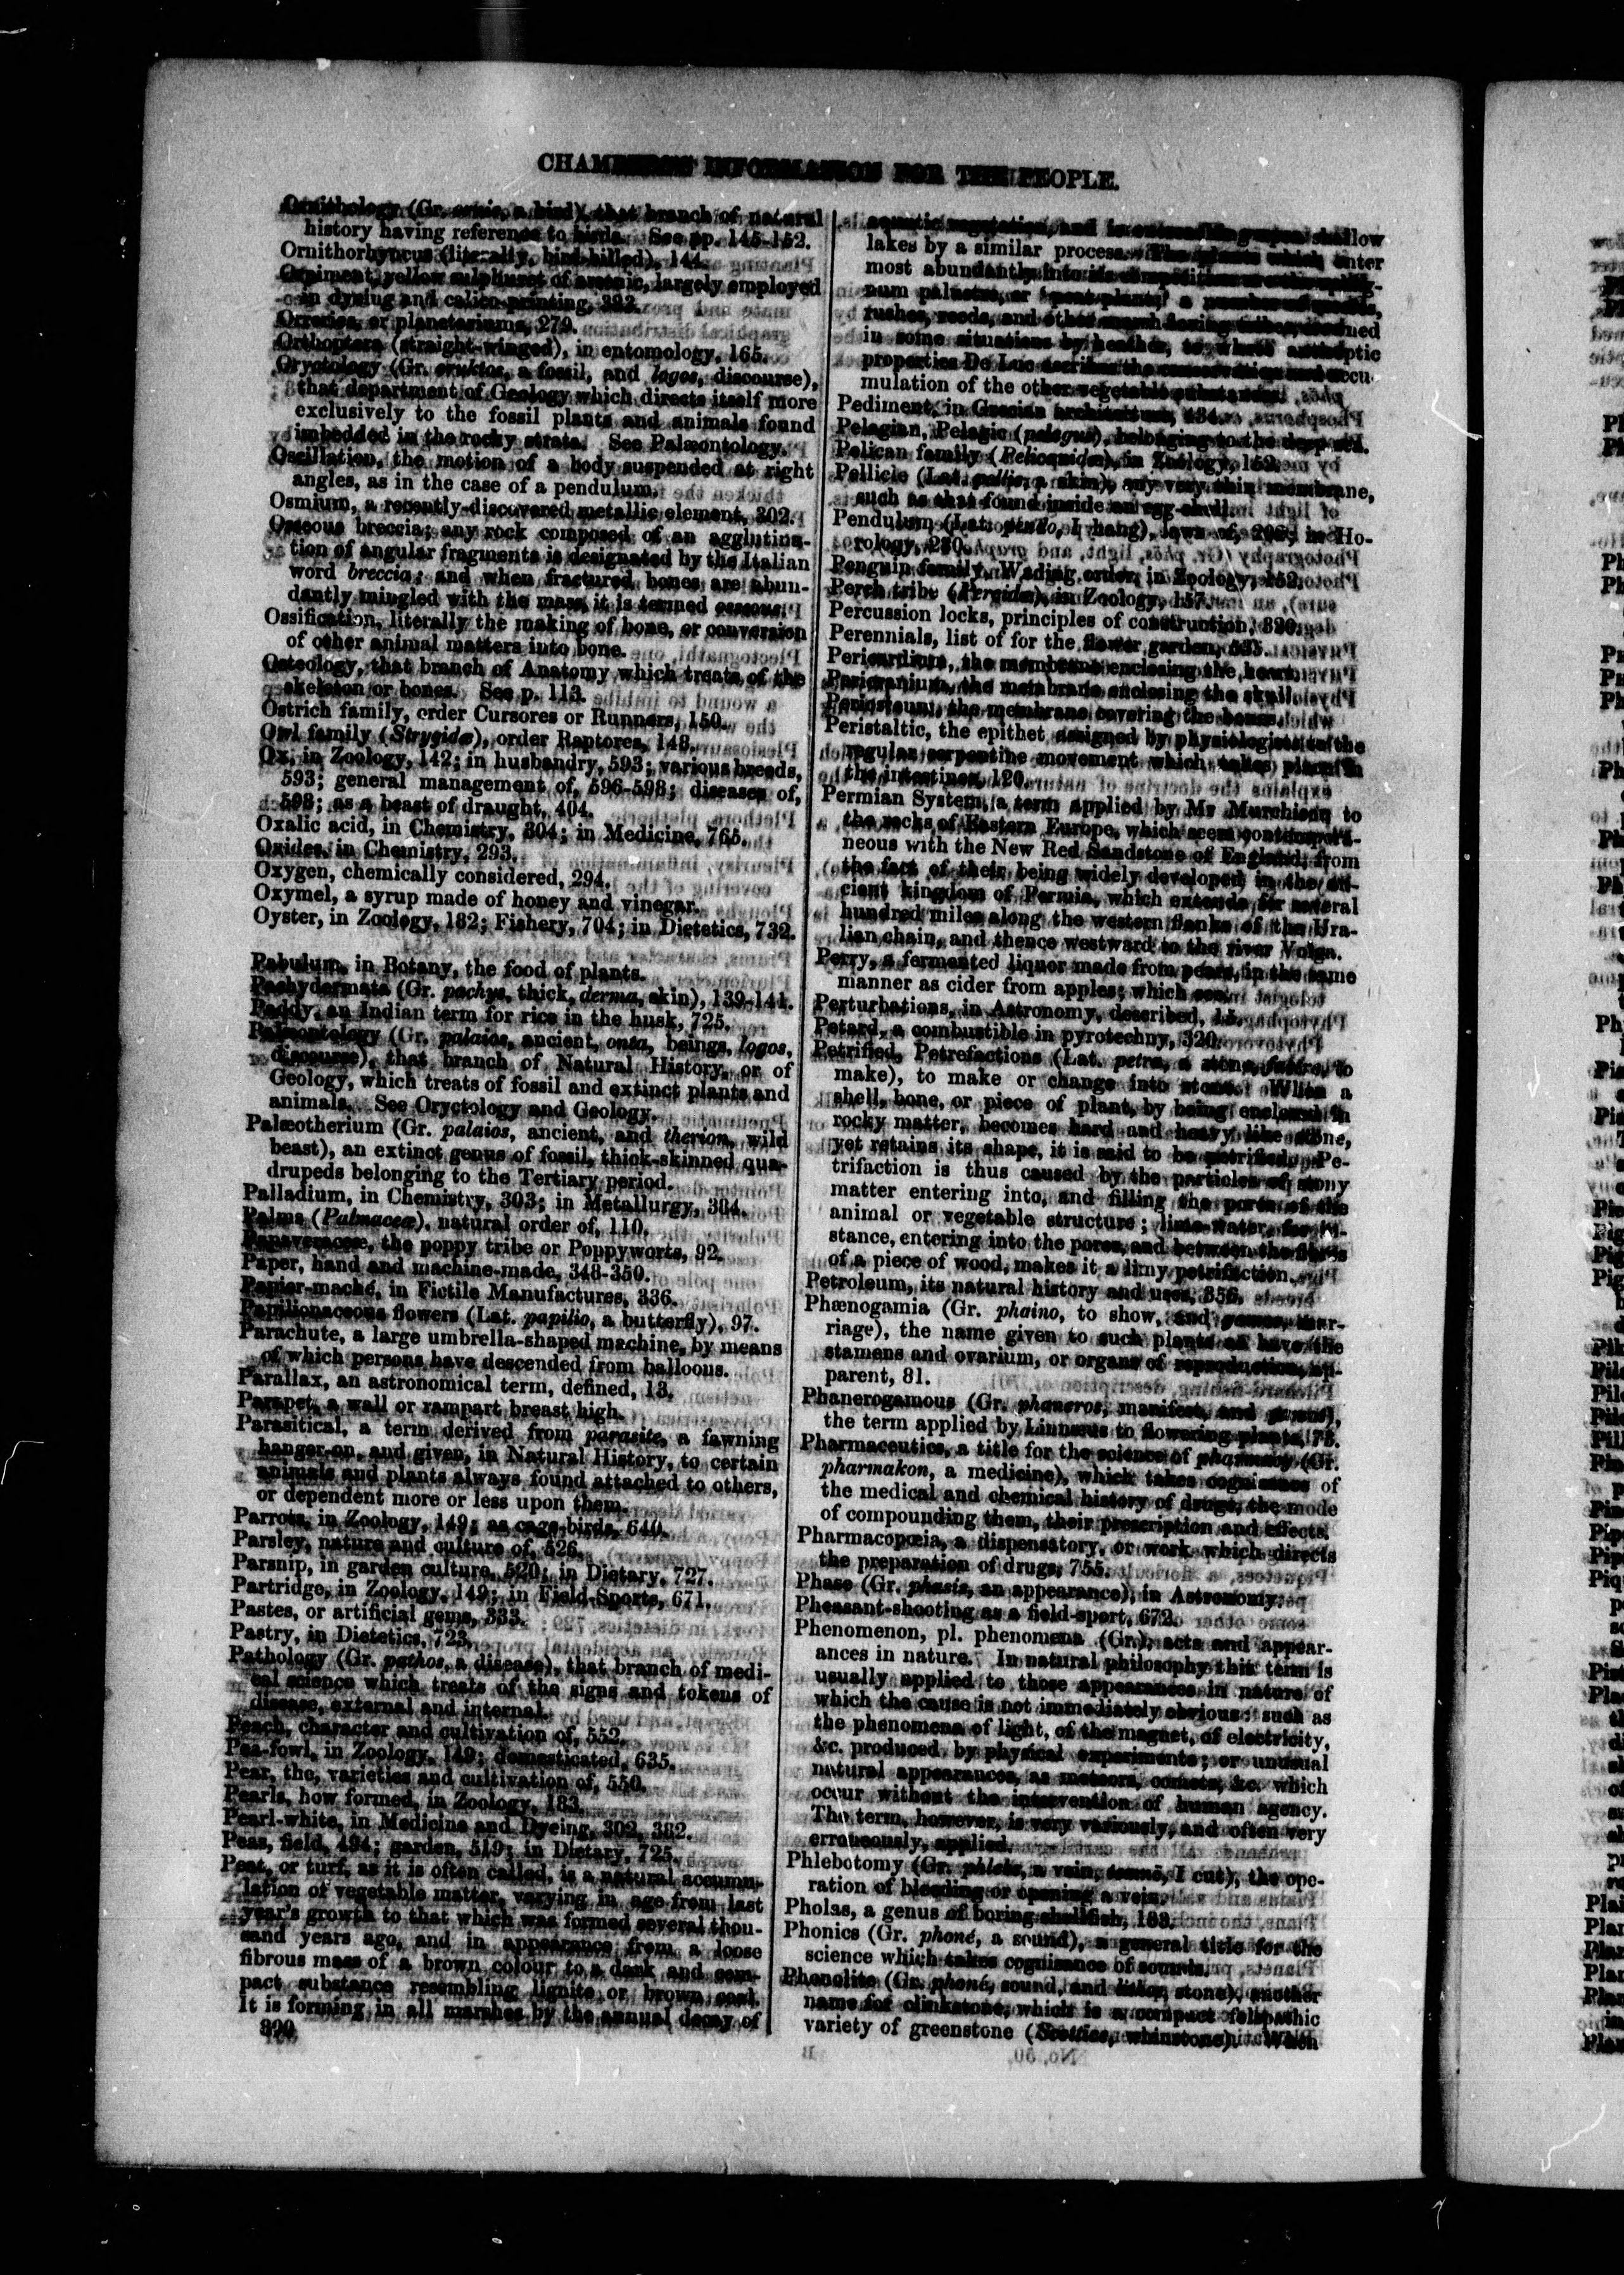 CHAMBERS'S INFORMATION FOR THE PEOPLE.
Ornithology (Gr. ornis, a bird), that branch of natural
history having reference to birds. See pp. 145-152.
Ornithorhyncus (literally, bird-billed), 144.
Orpiment, yellow sulphuret of arsenic, largely employed
in dyeing and calico-printing, 382.
Orreries, or planetariums, 279.
Orthoptera (straight-winged), in entomology, 165.
Oryctology (Gr. oruktos, a fossil, and logos, discourse),
that department of Geology which directs itself more
exclusively to the fossil plants and animals found
imbedded in the rocky strata. See Palæontology.
Oscillation, the motion of a body suspended at right
angles, as in the case of a pendulum.
Osmium, a recently-discovered metallic element, 302.
Osseous breccia; any rock composed of an agglutina-
tion of angular fragments is designated by the Italian
word breccia; and when fractured bones are abun-
dantly mingled with the mass, it is termed osseous.
Ossification, literally the making of bone, or conversion
of other animal matters into bone.
Osteology, that branch of Anatomy which treats of the
skeleton or bones. See p. 113.
Ostrich family, order Cursores or Runners, 150.
Owl family (Strygidæ), order Raptores, 148.
Ox, in Zoology, 142; in husbandry, 593; various breeds,
593; general management of, 596-598; diseases of,
598; as a beast of draught, 404.
Oxalic acid, in Chemistry, 304; in Medicine, 765.
Oxides, in Chemistry, 293.
Oxygen, chemically considered, 294.
Oxymel, a syrup made of honey and vinegar.
Oyster, in Zoology, 182; Fishery, 704; in Dietetics, 732.
Pabulum, in Botany, the food of plants.
Pachydermata (Gr. pachys, thick, derma, skin), 139-141.
Paddy, an Indian term for rice in the husk, 725.
Palæontology (Gr. palaios, ancient, onta, beings, logos,
discourse), that branch of Natural History, or of
Geology, which treats of fossil and extinct plants and
animals. See Oryctology and Geology.
Palæotherium (Gr. palaios, ancient, and therion, wild
beast), an extinct genus of fossil, thick-skinned qua-
drupeds belonging to the Tertiary period.
Palladium, in Chemistry, 303; in Metallurgy, 384.
Palms (Palmaceæ), natural order of, 110.
Papaveraceæ, the poppy tribe or Poppyworts, 92.
Paper, hand and machine-made, 348-350.
Papier-maché, in Fictile Manufactures, 336.
Papilionaceous flowers (Lat. papilio, a butterfly), 97.
Parachute, a large umbrella-shaped machine, by means
of which persons have descended from balloons.
Parallax, an astronomical term, defined, 13.
Parapet, a wall or rampart breast high.
Parasitical, a term derived from parasite, a fawning
hanger-on, and given, in Natural History, to certain
animals and plants always found attached to others,
or dependent more or less upon them.
Parrots, in Zoology, 149; as cage-birds, 640.
Parsley, nature and culture of, 526.
Parsnip, in garden culture, 520; in Dietary, 727.
Partridge, in Zoology, 149; in Field-Sports, 671.
Pastes, or artificial gems, 333.
Pastry, in Dietetics, 723.
Pathology (Gr. pathos, a disease), that branch of medi-
cal science which treats of the signs and tokens of
disease, external and internal.
Peach, character and cultivation of, 552.
Pea-fowl, in Zoology, 149; domesticated, 635.
Pear, the, varieties and cultivation of, 550.
Pearls, how formed, in Zoology, 183.
Pearl-white, in Medicine and Dyeing, 302, 382.
Peas, field, 494; garden, 519; in Dietary, 725.
Peat, or turf, as it is often called, is a natural accumu-
lation of vegetable matter, varying in age from last
year's growth to that which was formed several thou-
sand years ago, and in appearance from a loose
fibrous mass of a brown colour to a dark and com-
pact substance resembling lignite or brown coal.
It is forming in all marshes by the annual decay of
320
aquatic vegetation, and is shallow
lakes by a similar process. The plants which enter
most abundantly into its
num palustre, or 'peat-plant,' a number of
rushes, reeds, and other
in some situations by heather, to whose antiseptic
properties De Luc ascribes the conservation and accu-
mulation of the other vegetable substances.
Pediment, in Grecian architecture, 434.
Pelagian, Pelagic (pelagus), belonging to the deep sea.
Pelican family (Pelicanidæ), in Zoology, 152.
Pellicle (Lat. pellis, a skin), any very thin membrane,
such as that found inside an egg-shell.
Pendulum (Lat. pendo, I hang), laws of, 206; in Ho-
rology, 280.
Penguin family, Wading order, in Zoology, 152.
Perch tribe (Percidæ), in Zoology, 157.
Percussion locks, principles of construction, 320.
Perennials, list of for the flower garden, 535.
Pericardium, the membrane enclosing the heart.
Pericranium, the membrane enclosing the skull.
Periosteum, the membrane covering the bones.
Peristaltic, the epithet assigned by physiologists to the
regular serpentine movement which takes place in
the intestines, 120.
Permian System, a term applied by Mr Murchison to
the rocks of Eastern Europe, which seem contempora-
neous with the New Red Sandstone of England; from
the fact of their being widely developed in the an-
cient kingdom of Permia, which extends for several
hundred miles along the western flanks of the Ura-
lian chain, and thence westward to the river Volga.
Perry, a fermented liquor made from pears, in the same
manner as cider from apples; which see.
Perturbations, in Astronomy, described, 15.
Petard, a combustible in pyrotechny, 320.
Petrified, Petrefactions (Lat. petra, a stone, facire, to
make), to make or change into stone. When a
shell, bone, or piece of plant, by being enclosed in
rocky matter, becomes hard and heavy like stone,
yet retains its shape, it is said to be petrified. Pe-
trifaction is thus caused by the particles of stony
matter entering into, and filling the pores of the
animal or vegetable structure; lime-water, for in-
stance, entering into the pores, and between the fibres
of a piece of wood, makes it a limy petrifaction.
Petroleum, its natural history and uses, 356.
Phænogamia (Gr. phaino, to show, and gamos, mar-
riage), the name given to such plants as have the
stamens and ovarium, or organs of reproduction, ap-
parent, 81.
Phanerogamous (Gr. phaneros, manifest, and gamos),
the term applied by Linnæus to flowering plants, 75.
Pharmaceutics, a title for the science of pharmacy (Gr.
pharmakon, a medicine), which takes cognisance of
the medical and chemical history of drugs, the mode
of compounding them, their prescription and effects.
Pharmacopœia, a dispensatory, or work which directs
the preparation of drugs, 755.
Phase (Gr. phasis, an appearance), in Astronomy.
Pheasant-shooting as a field-sport, 672.
Phenomenon, pl. phenomena (Gr.), acts and appear-
ances in nature. In natural philosophy this term is
usually applied to those appearances in nature of
which the cause is not immediately obvious: such as
the phenomena of light, of the magnet, of electricity,
&c. produced by physical experiments; or unusual
natural appearances, as meteors, comets, &c. which
occur without the intervention of human agency.
The term, however, is very variously, and often very
erroneously, applied.
Phlebotomy (Gr. phlebs, a vein, temnō, I cut), the ope-
ration of bleeding or opening a vein.
Pholas, a genus of boring shellfish, 183.
Phonics (Gr. phoné, a sound), a general title for the
science which takes cognisance of sounds.
Phonolite (Gr. phoné, sound, and lithos, stone), another
name for clinkstone, which is a compact felspathic
variety of greenstone (Scottice, whinstone). When